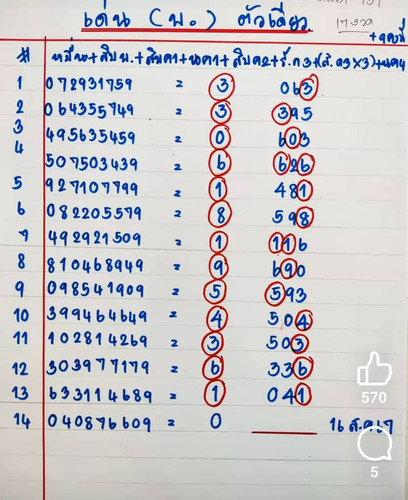 เด่น (บ.) ตัวเดียว
17 งวด
# หมื่น+สิบบ.+สิบค1+นค1+สิบค2+ร้.ต3+(สิ.ต3x3)+นต4
1 072931759 = 3 063
2 064355749 = 3 395
3 495635459 = 0 603
4 507503439 = 6 626
5 927107799 = 1 481
6 082205579 = 8 598
7 492921509 = 1 116
8 810468949 = 9 690
9 098541909 = 5 593
10 399464649 = 4 504
11 102814269 = 3 503
12 303977179 = 6 336
13 633114689 = 1 041
14 040876609 = 0 16 ส.ค67
570
5